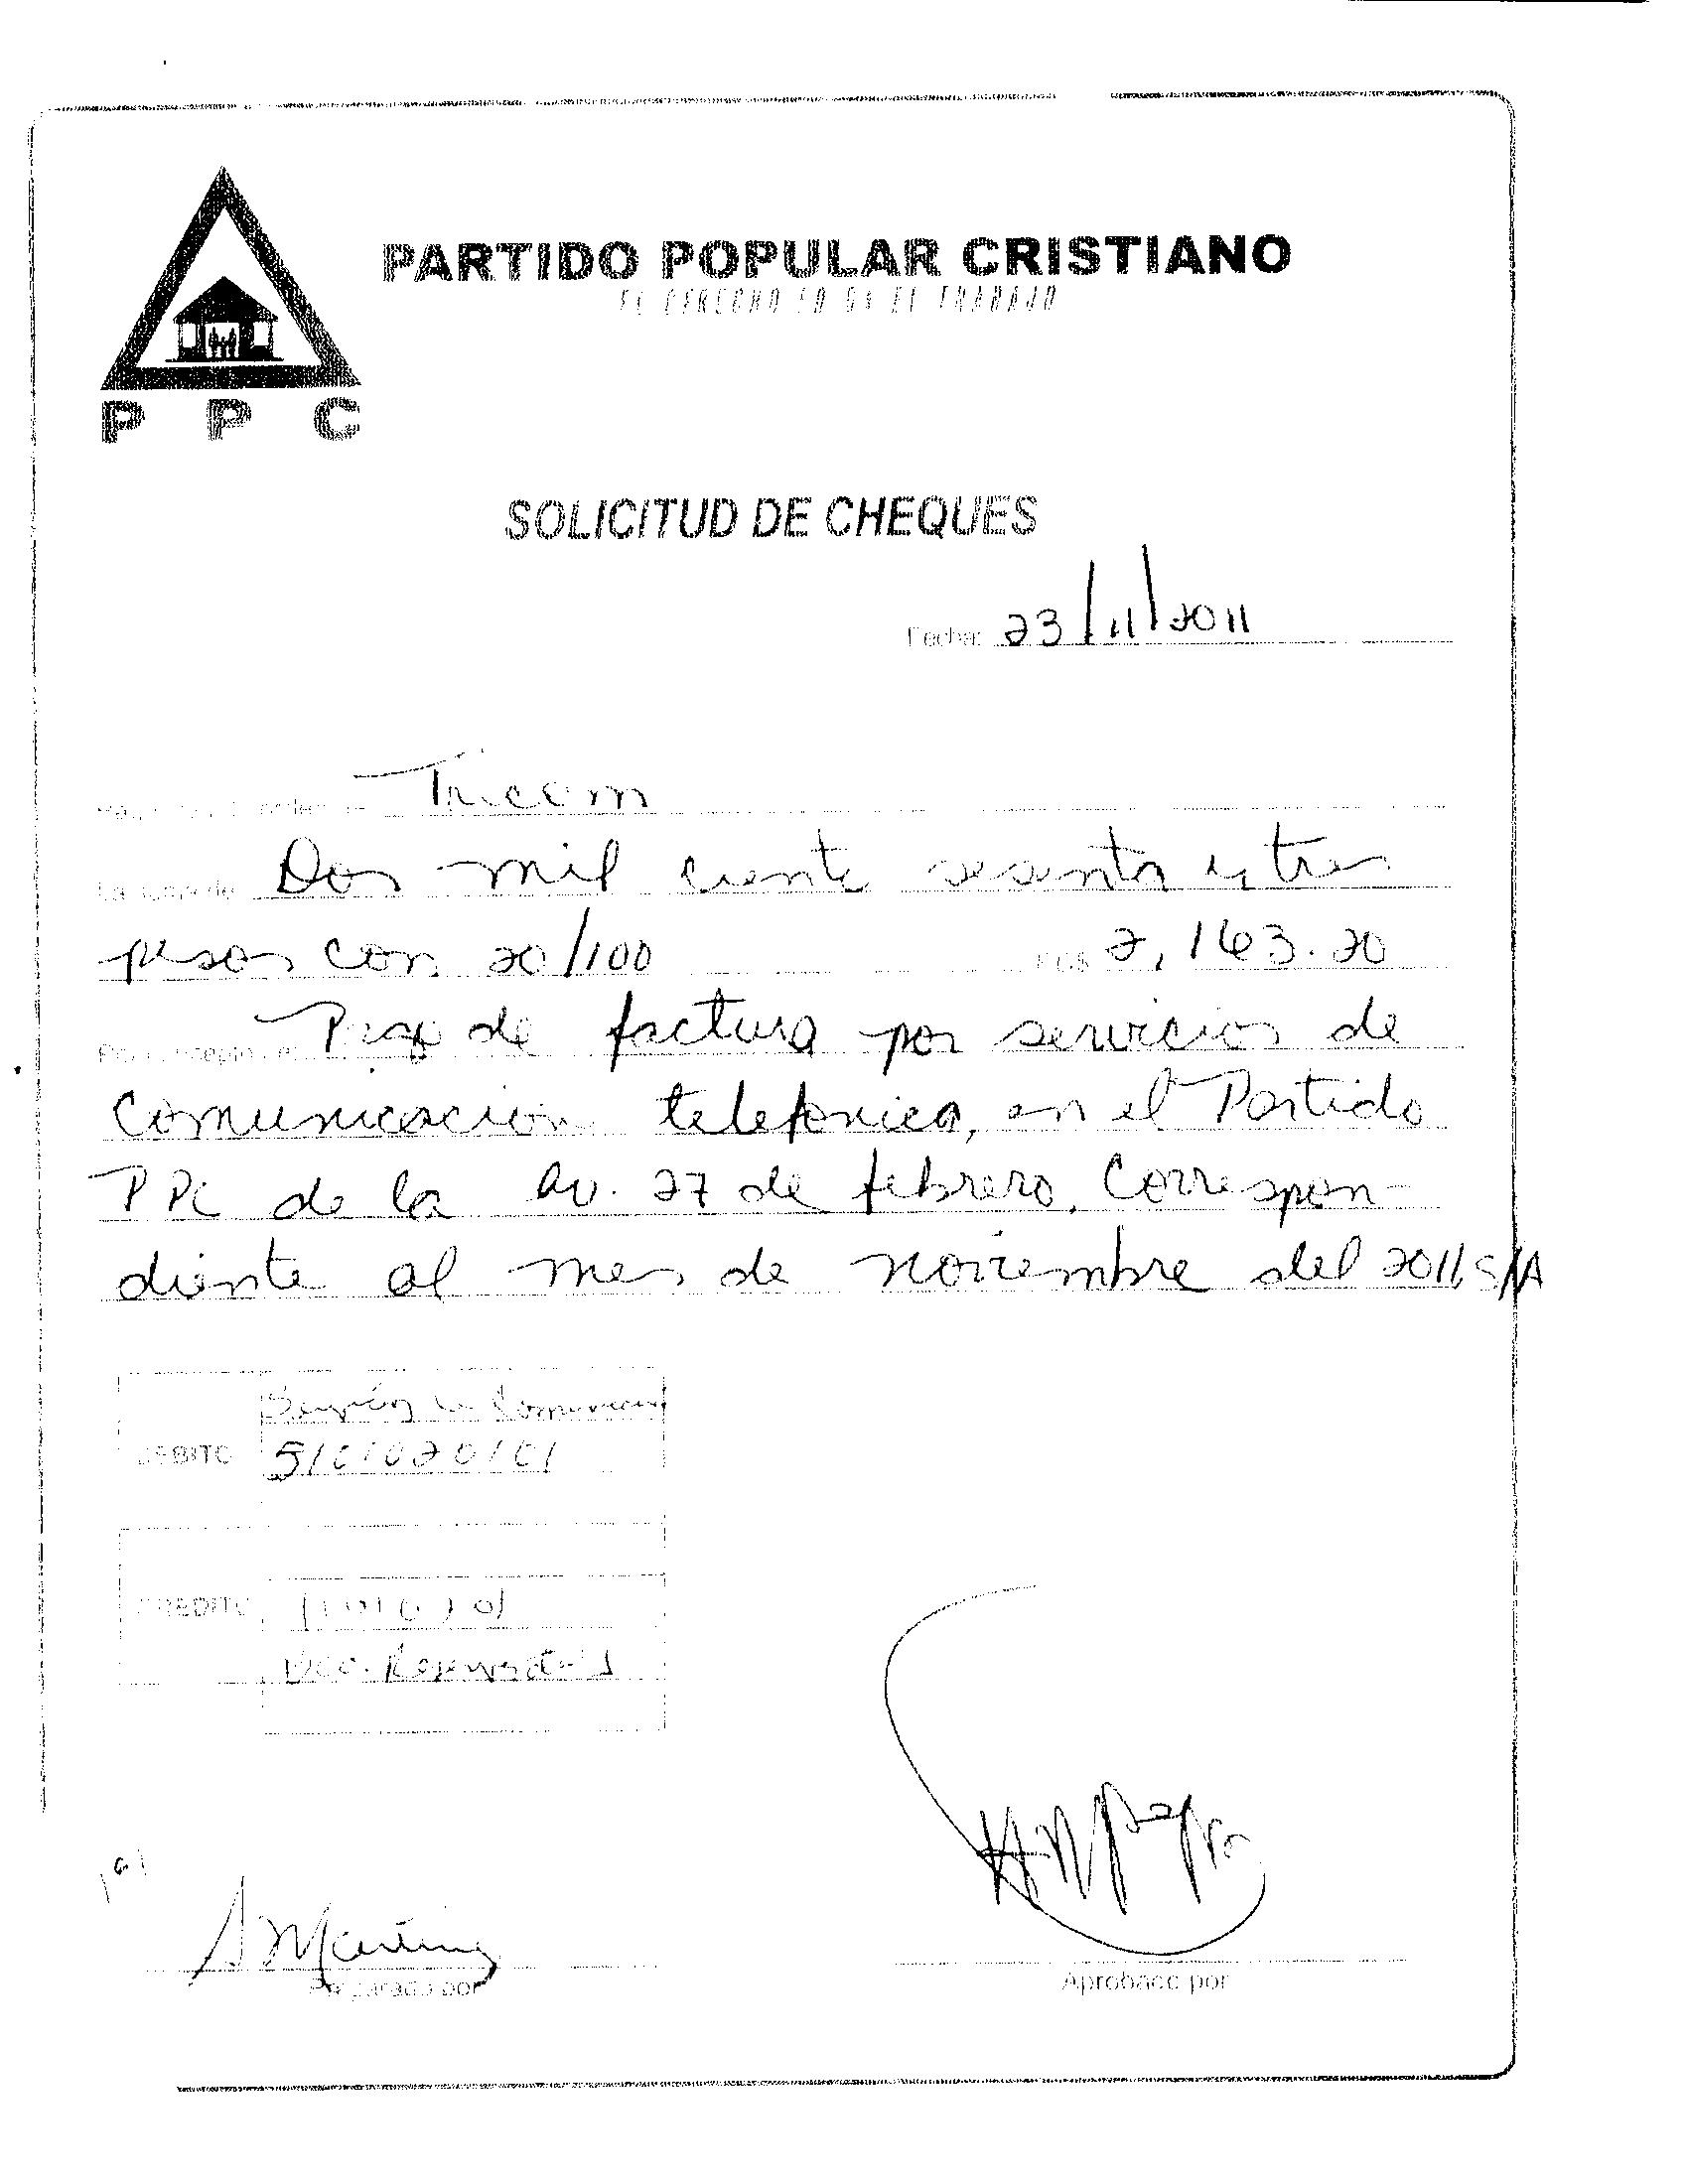 PARTIDO POPULAR CRISTIANO
EL DERECHO EL TRABAJO
P P C
SOLICITUD DE CHEQUES
Fecha: 23/11/2011
Tricom
La suma de Dos mil ciento sesenta y tres
pesos con 20/100 RD$ 2,163.20
Por concepto de Pago de factura por servicios de
Comunicación telefonica, en el Partido
PPC de la Av. 27 de febrero, Correspon-
diente al mes de noviembre del 2011, S/A
DEBITO
CREDITO
Preparado por
Aprobado por